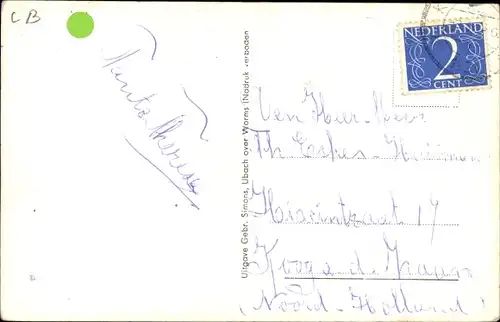 CB
NEDERLAND
2
CENT
Tante Therese
Uitgave Gebr. Simons, Ubach over Worms (Nadruk verboden
Den Heer Mevr
Th
17
Koog a.d. Zaan
(Noord-Holland)